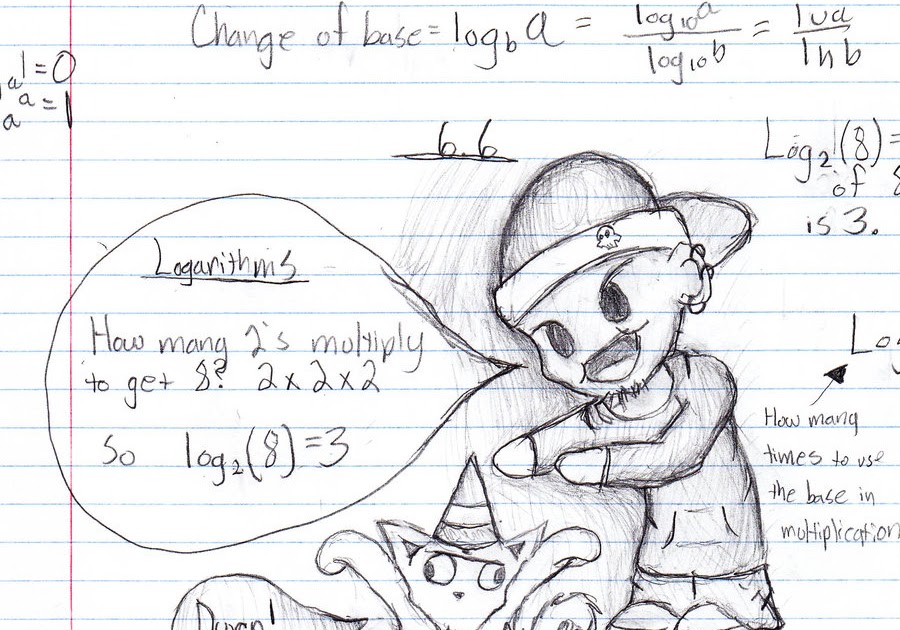 Change of base = log_b a = log₁₀a / log₁₀b = lna / lnb
a 1 = 0
a a = 1
6.6
Log₂(8) =
of 8
is 3.
Logarithms
How many 2's multiply
to get 8? 2 x 2 x 2
So log₂(8) = 3
Log
How many
times to use
the base in
multiplication